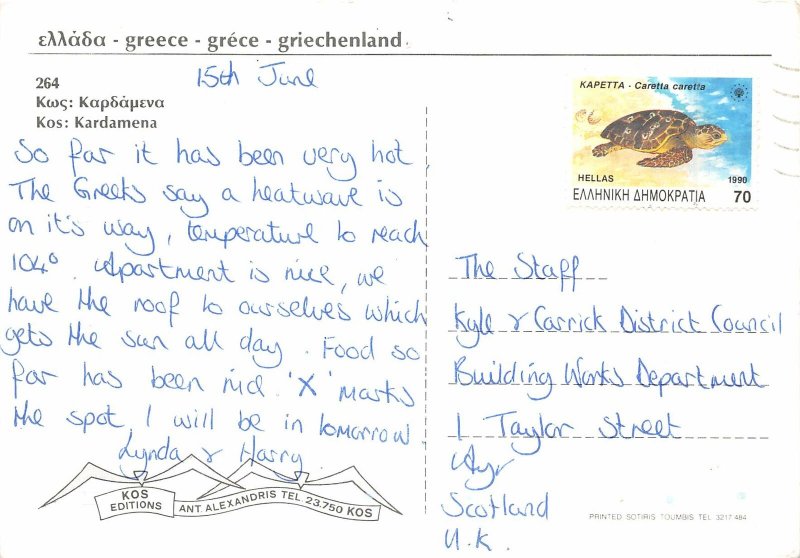 ελλάδα - greece - gréce - griechenland
264
Κως: Καρδάμενα
Kos: Kardamena
15th June
So far it has been very hot
The Greeks say a heatwave is
on it's way, temperature to reach
104°. Apartment is nice, we
have the roof to ourselves which
gets the sun all day. Food so
far has been nice. 'X' marks
the spot, I will be in tomorrow.
Lynda & Harry
KOS
EDITIONS
ANT. ALEXANDRIS TEL. 23.750 KOS
ΚΑΡΕΤΤΑ - Caretta caretta
HELLAS
1990
ΕΛΛΗΝΙΚΗ ΔΗΜΟΚΡΑΤΙΑ 70
The Staff
Kyle & Carrick District Council
Building Works Department
1 Taylor Street
Ayr
Scotland
U.K.
PRINTED SOTIRIS TOUMBIS TEL. 3217.484